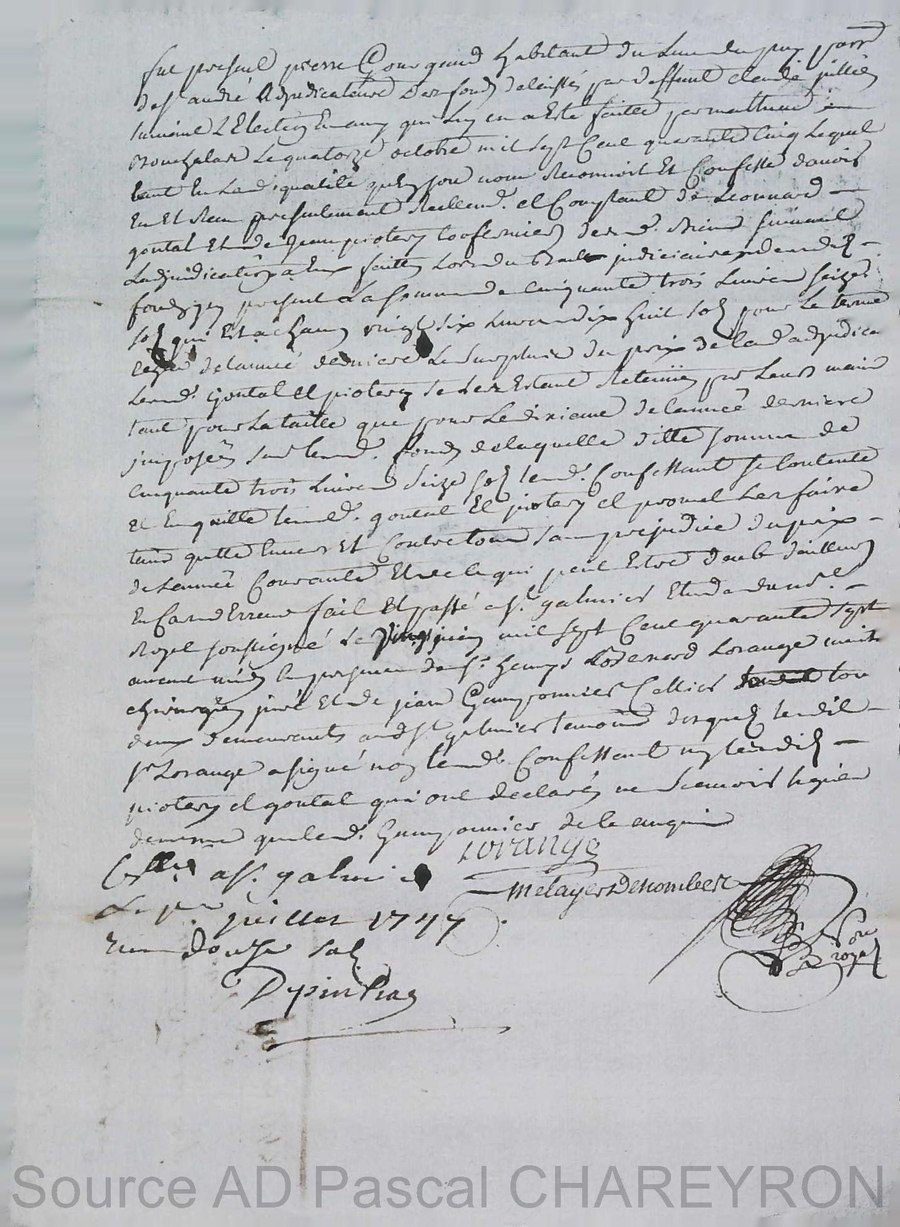 fut present pierre Gourgaud habitant du Lieu du puy parr
de st andré Adjudicataire des fonds delaissés par deffunt claude jullien
L'Election qui Luy en a Esté faitte par mathieu
Le quatorze octobre mil sept Cent quarante Cinq Lequel
tant En La dt qualité qu'en son nom Reconnoit Et Confesse d'avoir
Eu Et Receu presentement Reellemt. et Comptant de Leonnard
goutal Et de Jean piotery Cofermiers desd. Biens suivant
Ladjudication a Eux faitte Lors du Bail judiciaire desdits
fonds present La somme de Cinquante trois Livres seize
sols qui Est a Chacun vingt six Livres dix huit sols pour Le terme
de lannée derniere Le surplus du prix de lad. adjudica
Lesd. goutal et piotery se Les Estant Retenus par Leurs mains
tant pour La taille que pour Le dixieme de lannée derniere
jmposés sur lesd. fonds de laquelle ditte somme de
Cinquante trois Livres seize sols led. Confessant se Contente
Et En quitte lesd. goutal Et piotery et promet Les faire
tenir quitte Envers Et Contre tous sans prejudice du prix
de lannée Courante Et de ce qui peut Estre deub dailleurs
En Cas d'Erreur fait Et passé a st. galmier Etude du nore.
Royal soussigné Le vingt juin mil sept Cent quarante sept
avant midy En presence de sr. Lorange mait
chirurgien juré Et de jean Guyonnier Cellier tou
deux demeurants aud st galmier temoins desquels ledit
sr Lorange a signé non led. Confessant ny lesdits
piotery et goutal qui ont declarés ne Scavoir signer
de meme que led. Guyonnier de ce enquis
Lorange
Metayer Denombert
nore
royal
Collé a st. galmier
Le pr. juillet 1747
Reçu douze sols
Dupin
Source AD Pascal CHAREYRON